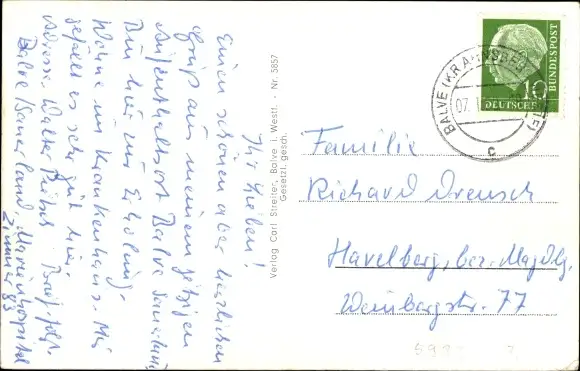 Ihr Lieben!
Einen schönen aber herzlichen
Gruß aus meinem jetzigen
Aufenthaltsort Balve Sauerland
Bin hier zur Erholung.
Wohne im Krankenhaus. Mir
gefällt es sehr gut hier.
Adresse: Walter
Balve/Sauerland, Marienhospital
Zimmer 83
Verlag Carl Streiter, Balve i. Westf. - Nr. 5857
Gesetzl. gesch.
DEUTSCHE
BUNDESPOST
10
BALVE (KR ARNSBERG
07.
c
Familie
Richard Dreusch
Havelberg, bez. Magdbg.
Weinbergstr. 77